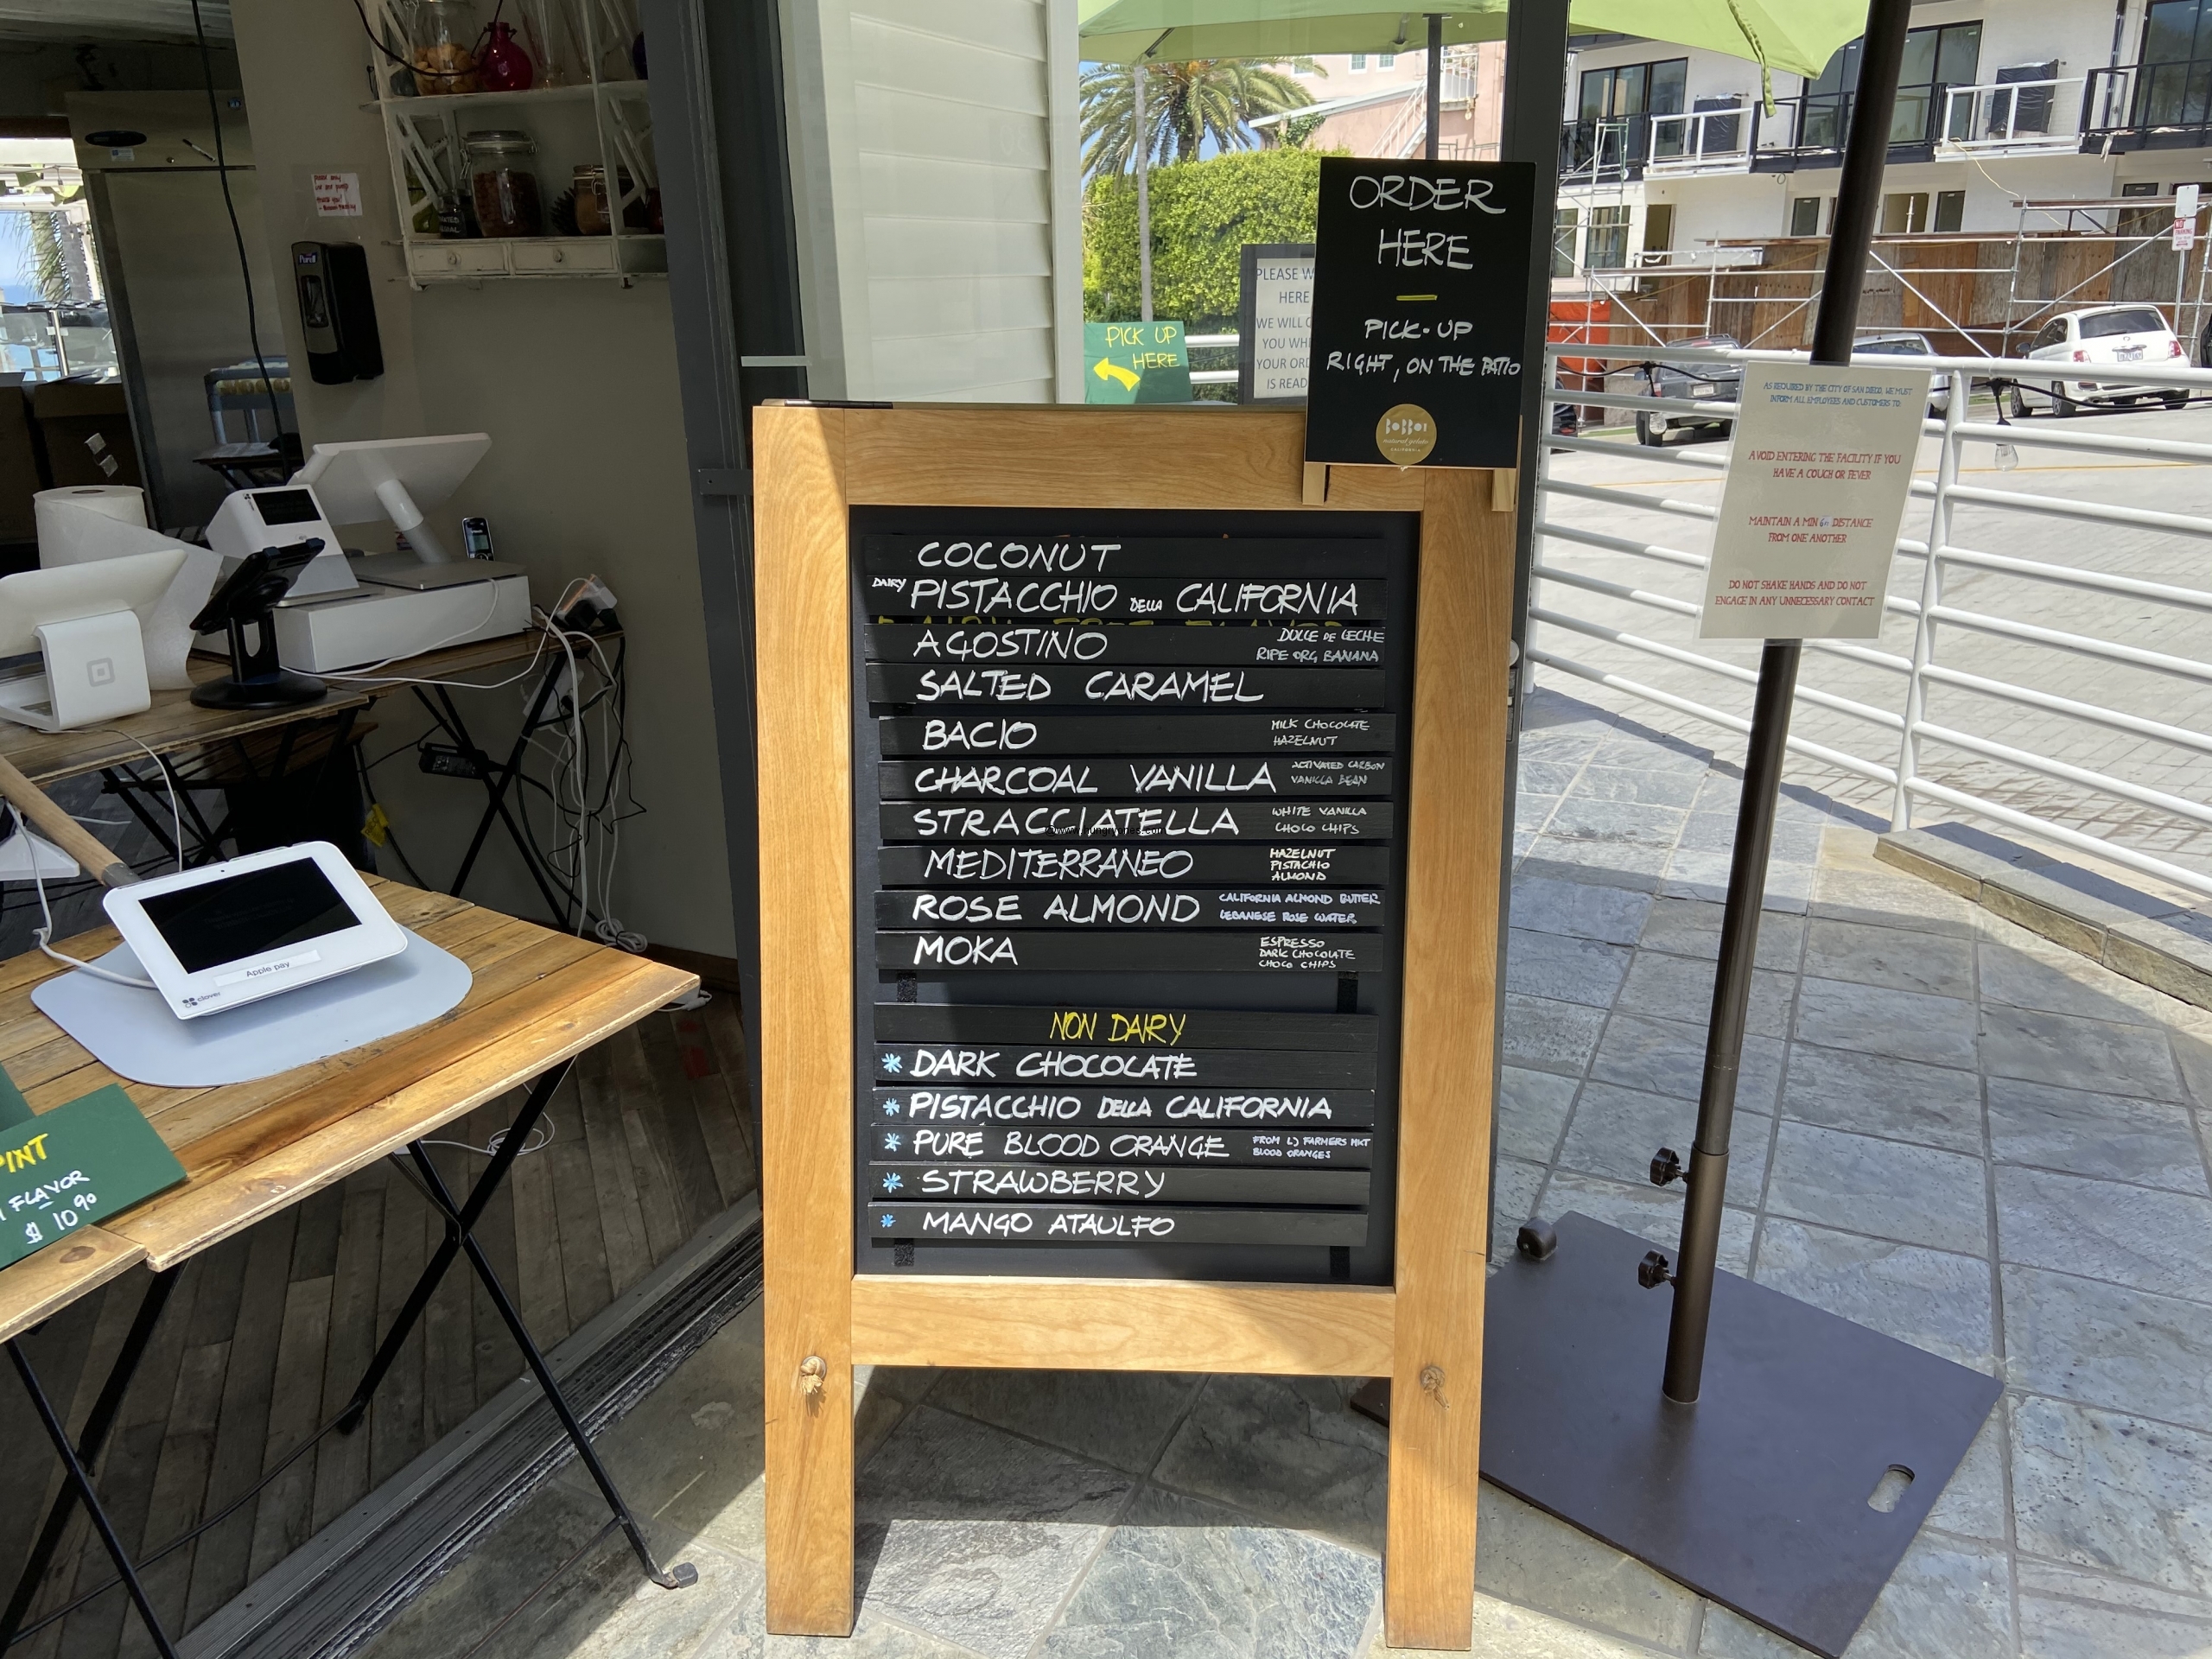 ORDER
HERE
PICK-UP
RIGHT, ON THE PATIO
BOBBOI
natural gelato
CALIFORNIA
PICK UP
HERE
PLEASE W
HERE
WE WILL
YOU WH
YOUR ORD
IS READ
AS REQUIRED BY THE CITY OF SAN DIEGO, WE MUST
INFORM ALL EMPLOYEES AND CUSTOMERS TO:
AVOID ENTERING THE FACILITY IF YOU
HAVE A COUGH OR FEVER
MAINTAIN A MIN 6ft DISTANCE
FROM ONE ANOTHER
DO NOT SHAKE HANDS AND DO NOT
ENGAGE IN ANY UNNECESSARY CONTACT
COCONUT
DAIRY PISTACCHIO DELLA CALIFORNIA
AGOSTINO DULCE DE LECHE
RIPE ORG BANANA
SALTED CARAMEL
BACIO MILK CHOCOLATE
HAZELNUT
CHARCOAL VANILLA ACTIVATED CARBON
VANILLA BEAN
STRACCIATELLA WHITE VANILLA
CHOCO CHIPS
MEDITERRANEO HAZELNUT
PISTACHIO
ALMOND
ROSE ALMOND CALIFORNIA ALMOND BUTTER
LEBANESE ROSE WATER
MOKA ESPRESSO
DARK CHOCOLATE
CHOCO CHIPS
NON DAIRY
* DARK CHOCOLATE
* PISTACCHIO DELLA CALIFORNIA
* PURE BLOOD ORANGE FROM LJ FARMERS MKT
BLOOD ORANGES
* STRAWBERRY
* MANGO ATAULFO
Purell
Apple pay
clover
PINT
FLAVOR
$ 10 90